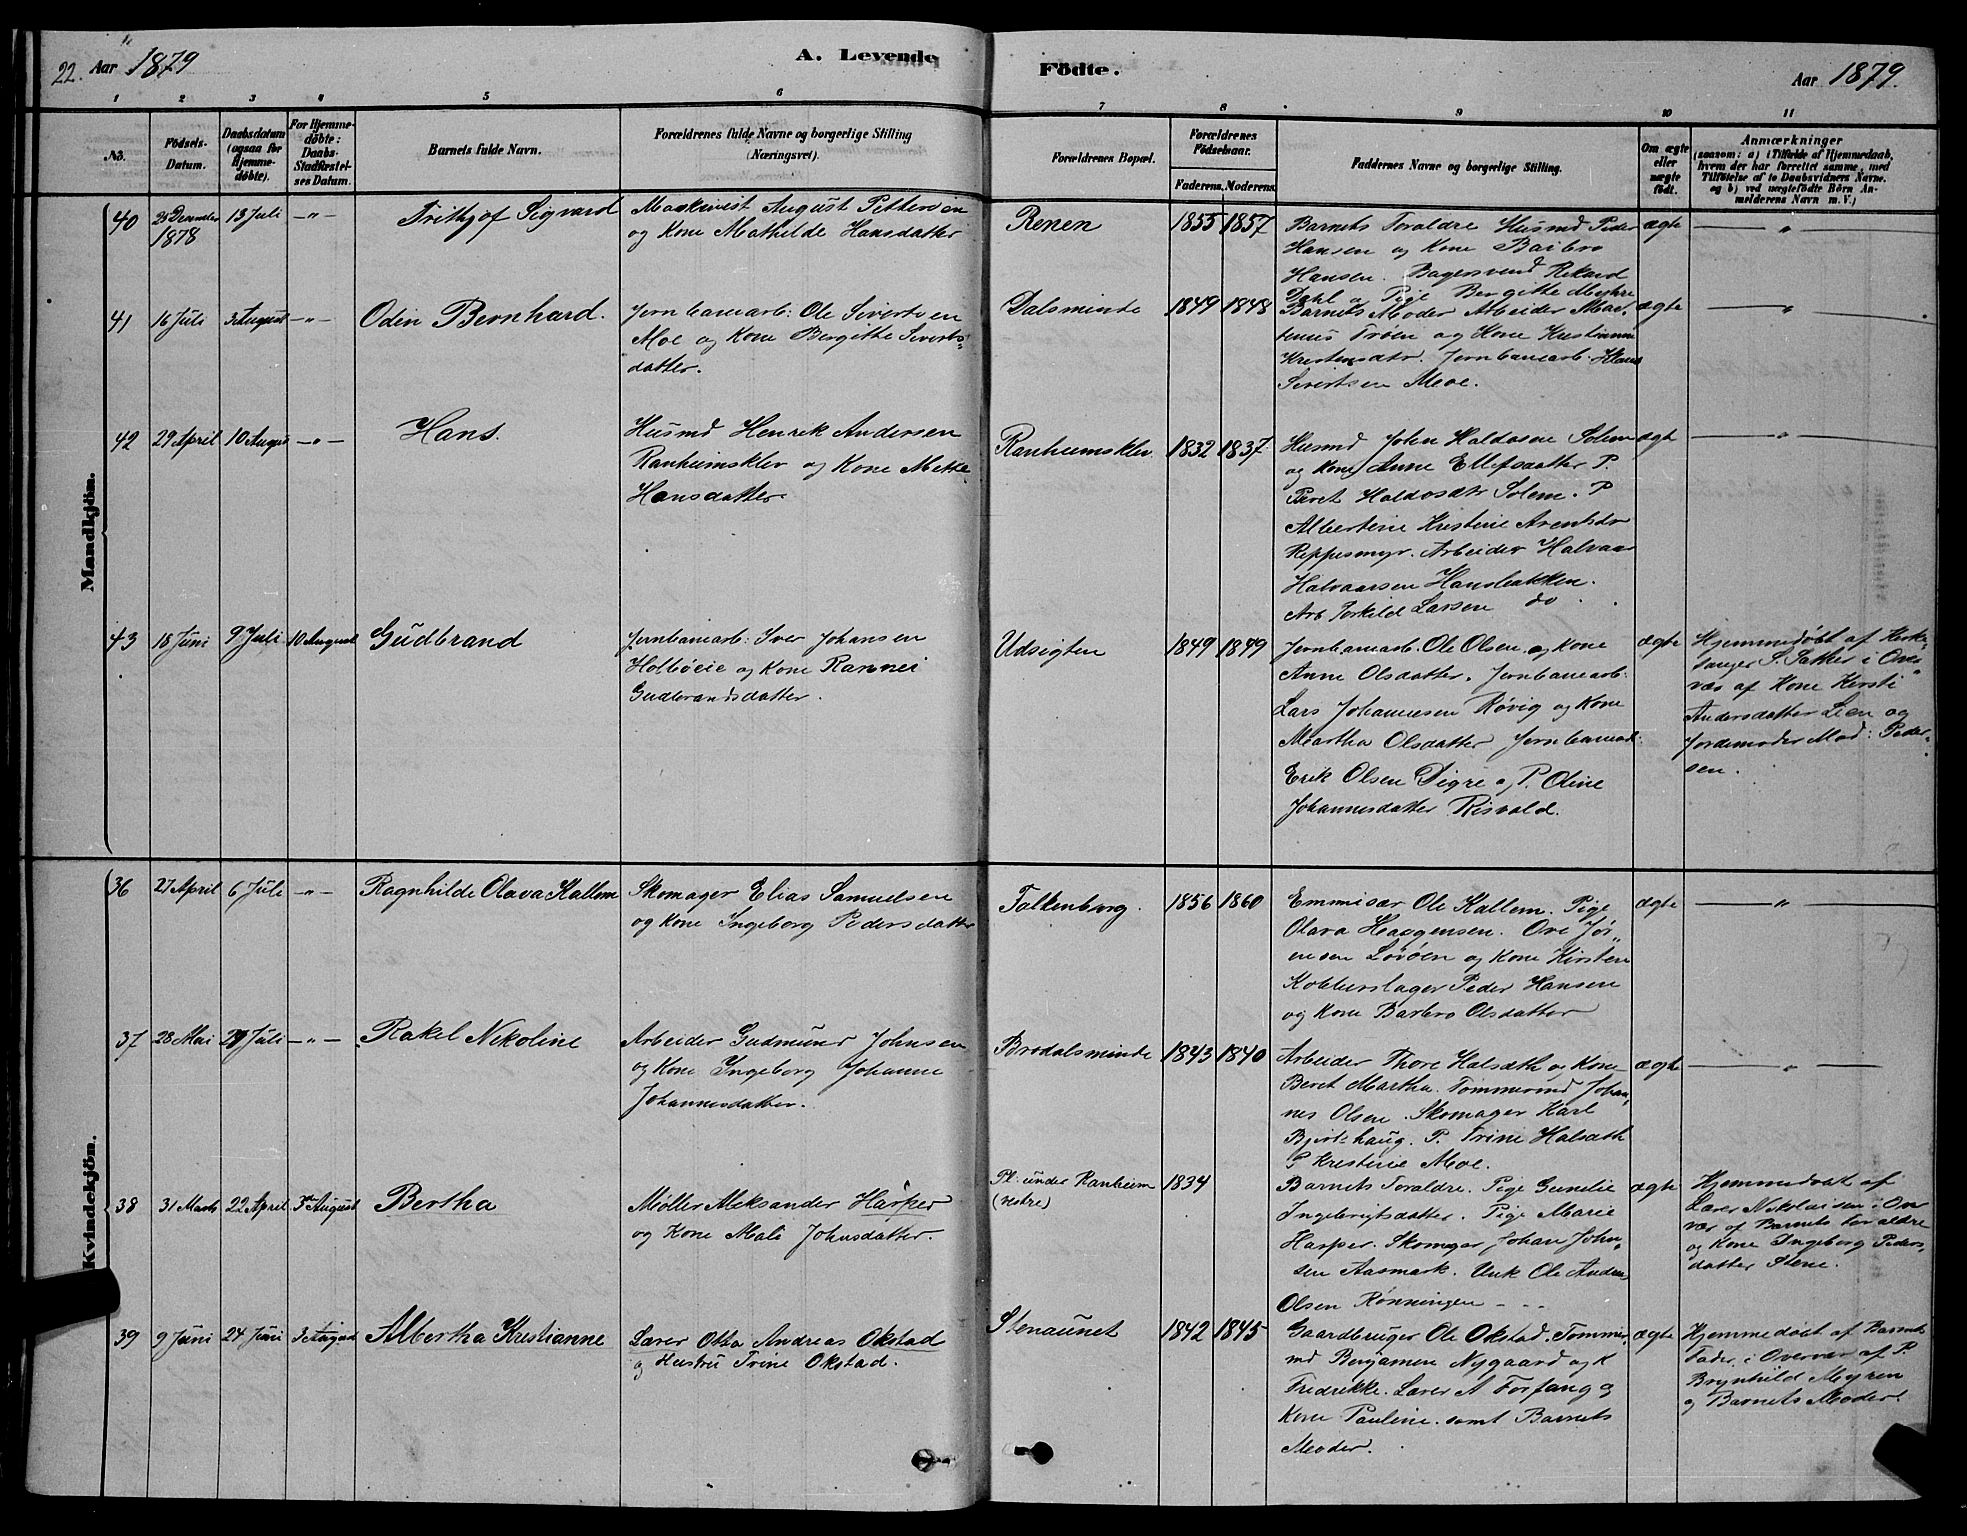 22. Aar 1879
A. Levende
Födte.
Aar 1879.
1 2 3 4 5 6 7 8 9 10 11
No.
Födsels-
Datum.
Daabsdatum
(ogsaa for
Hjemme-
döbte).
For Hjemme-
döbte:
Daabs-
Stadfæstel-
ses Datum.
Barnets fulde Navn.
Forældrenes fulde Navne og borgerlige Stilling
(Næringsvei).
Forældrenes Bopæl.
Forældrenes
Födselsaar.
Faderens. Moderens.
Faddernes Navne og borgerlige Stilling.
Om ægte
eller
uægte
födt.
Anmærkninger
(saasom: a) i Tilfælde af Hjemmedaab,
hvem der har forrettet samme, med
Tilföielse af to Daabsvidners Navne.
og b) ved uægtefödte Börn An-
melderens Navn m. V.)
Mandkjön.
40 25 December 1878 13 Juli -"- Frithjof Sigvard
Maskinist August Pettersen
og Kone Mathilde Hansdatter
Renen 1855 1857
Barnets Foraldre Husmd Peder
Hansen og Kone Barbro
Hansen. Bagersvend Rikard
Dahl og Pige Bergitte
ægte "
41 16 Juli 3 August -"- Odin Bernhard.
Jernbanearb: Ole Sivertsen
Moe og Kone Bergitte Siverts-
datter.
Dalsminde 1849 1848
Barnets Moder Arbeider Mar-
tinus Trøen og Kone Kristianne
Kristensdtr. Jernbanearb. Hans
Sivertsen Moe.
ægte "
42 29 April 10 August -"- Hans.
Husmd Henrik Andersen
Ranheimsklev og Kone Mette
Hansdatter
Ranheimsklev 1832 1837
Husmd John Haldosen Solem
og Kone Anne Ellefsdatter P.
Beret Haldosdtr Solem. P
Albertine Kristine Arentsdr
Reppesmyr. Arbeider Halvaar
Halvaarsen Hansbakken.
Arb Torkild Larsen do
ægte "
43 18 Juni 9 Juli 10 August Gudbrand
Jernbanearb: Iver Johansen
Holbøeie og Kone Rannei
Gudbrandsdatter.
Udsigten 1849 1849
Jernbanearb. Ole Olsen og Kone
Anne Olsdatter. Jernbanearb:
Lars Johannesen Røvig og Kone
Martha Olsdatter Jernbanearb:
Erik Olsen Digre og P. Oline
Johannesdatter Risvold.
ægte
Hjemmedøbt af Kirke-
sanger S. Sather i Over-
vær af Kone Kirsti
Andersdatter Lien og
Jordemoder Mad: Peder-
sen.
Kvindekjön.
36 27 April 6 Juli -"- Ragnhilde Olava Kallem
Skomager Elias Samuelsen
og Kone Ingeborg Pedersdatter
Falkenborg. 1856 1860
Emmisær Ole Kallem. Pige
Olava Haagensen. Ove Jør-
ensen Løvøen og Kone Kirsten
Kobberslager Peder Hansen
og Kone Barbro Olsdatter
ægte "
37 28 Mai Juli -"- Rakel Nikoline
Arbeider Gudmund Johnsen
og Kone Ingeborg Johanne
Johannesdatter.
Brodalsminde 1843 1840
Arbeider Thore Halsæth og Kone
Beret Martha. Tømmermd Johan-
nes Olsen. Skomager Karl
Bjerkhaug. P. Trine Halsæth
P Kristine Moe.
ægte "
38 31 Marts 22 April 3 August Bertha
Møller Aleksander Harper
og Kone Mali Johnsdatter.
Pl. under Ranheim
(nedre)
1834
Barnets Foraldre. Pige Gunelie
Ingebrigtsdatter. Pige Marie
Harper. Skomager Johan John-
sen Aasmark. Unk Ole Anders
Olsen Rønningen - - -
ægte
Hjemmedøbt af
Lærer Nikolaisen i Over
vær af Barnets Foraldre
og Kone Ingeborg Peders-
datter Stene.
39 9 Juni 24 Juni 3 August Albertha Kristianne
Lærer Otto Andreas Okstad
og Hustru Trine Okstad.
Stenaunet 1842 1845
Gaardbruger Ole Okstad. Tømmer-
md Bergamin Nygaard og K
Fredrikke. Lærer A Forfang og
Kone Pauline. samt Barnets
Moder.
ægte
Hjemmedøbt af Barnets
Fader i Overvær af P.
Brynhild Myren
og Barnets Moder.